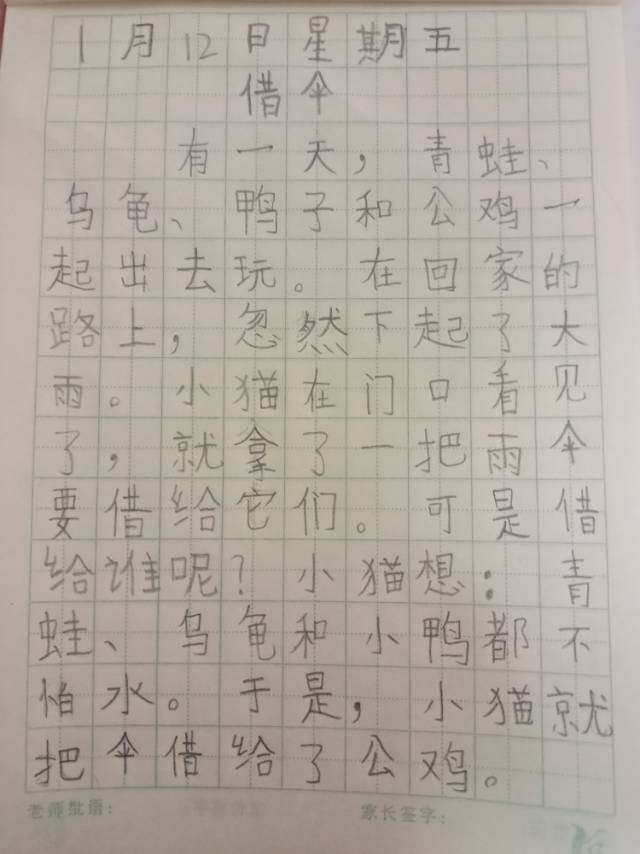 1月12日星期五
借伞
有一天，青蛙、
乌龟、鸭子和公鸡一
起出去玩。在回家的
路上，忽然下起了大
雨。小猫在门口看见
了，就拿了一把雨伞
要借给它们。可是借
给谁呢？小猫想：青
蛙、乌龟和小鸭都不
怕水。于是，小猫就
把伞借给了公鸡。
老师批语： 家长签字：